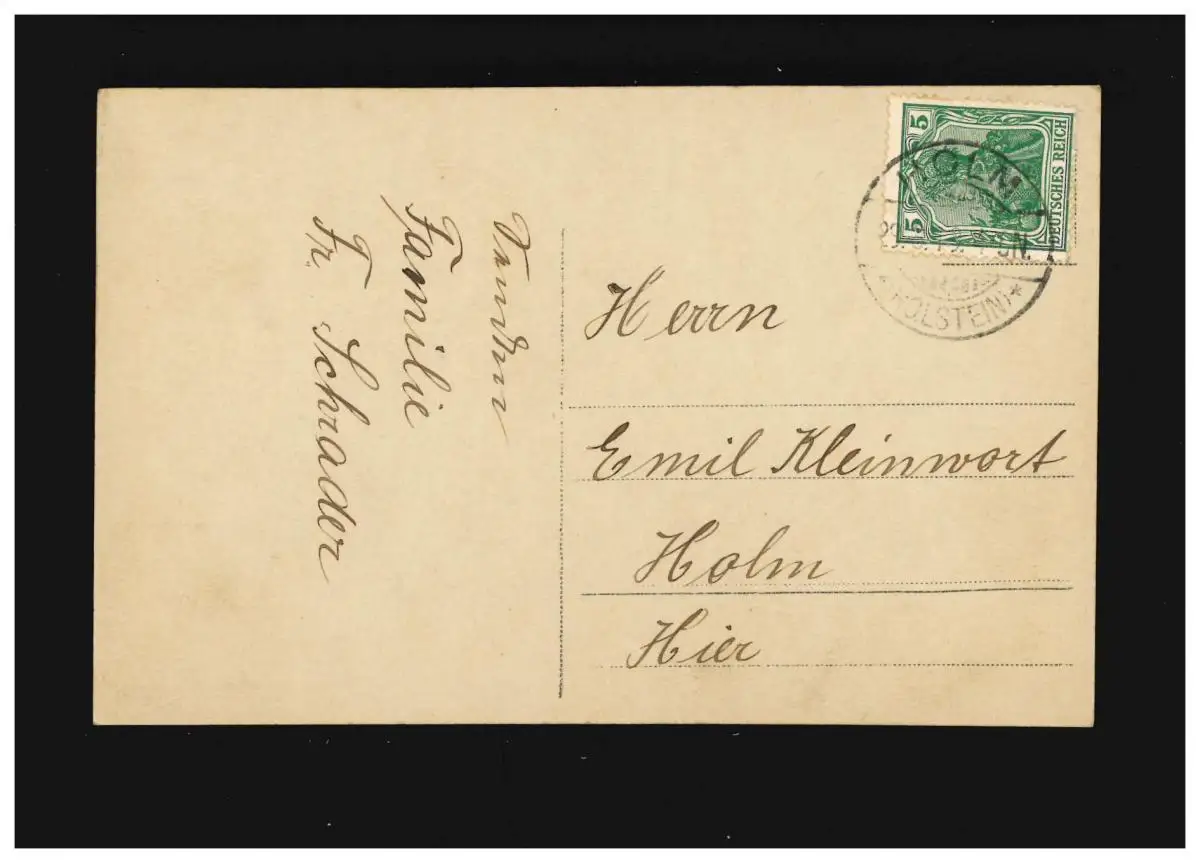 Familie
Fr. Schrader
5
5
DEUTSCHES REICH
HOLM
(HOLSTEIN) *
Herrn
Emil Kleinwort
Holm
Hier